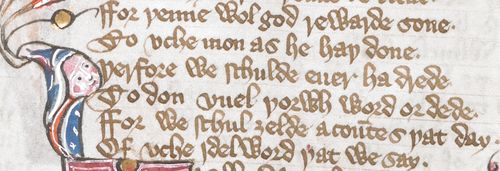 ffor þenne wol god rewarde sone.
To vche mon as he haþ done.
Þerfore we schulde euer ha drede.
To don vuel þorwh word or dede.
ffor we schul ȝelde acoūtes þat day.
Of vche ydel word þat we say.